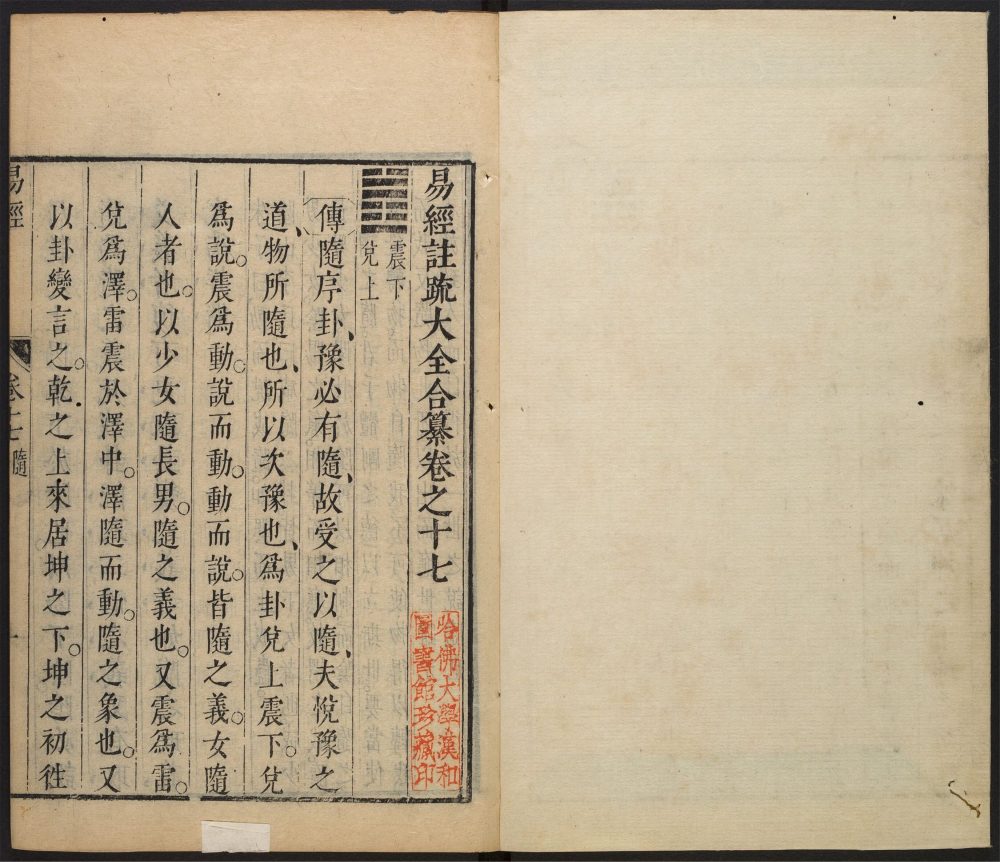 易經註疏大全合纂卷之十七
哈佛大學漢和
圖書館珍藏印
震下
兌上
傳隨序卦、豫必有隨、故受之以隨、夫悅豫之
道、物所隨也、所以次豫也、爲卦兌上震下。兌
爲說。震爲動。說而動。動而說。皆隨之義。女隨
人者也。以少女隨長男。隨之義也。又震爲雷。
兌爲澤。雷震於澤中。澤隨而動。隨之象也。又
以卦變言之。乾之上來居坤之下。坤之初徃
易經
卷十七
隨
一